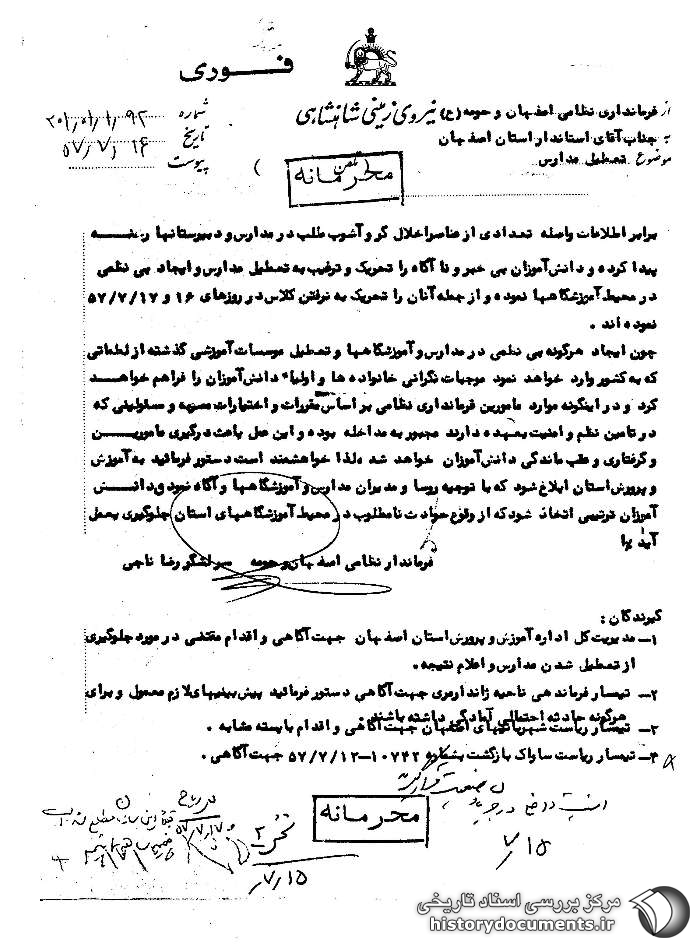 فـــوری
از فرمانداری نظامی اصفهان و حومه (ع) نیروی زمینی شاهنشاهی
به جناب آقای استاندار استان اصفهان
موضوع تعطیل مدارس
شماره ۲۰۱٫۰۱٫۱٫۹۲
تاریخ ۵۷٫۷٫۱۶
پیوست
محرمانه
برابر اطلاعات واصله تعدادی از عناصر اخلال گر و آشوب طلب در مدارس و دبیرستانها رخنــه
پیدا کرده و دانش آموزان بی خبر و نا آگاه را تحریک و ترغیب به تعطیل مدارس و ایجاد بی نظمی
در محیط آموزشگاهها نموده و از جمله آنان را تحریک به نرفتن کلاس در روزهای ۱۶ و ۵۷/۷/۱۷
نموده اند .
چون ایجاد هرگونه بی نظمی در مدارس و آموزشگاهها و تعطیل موسسات آموزشی گذشته از لطماتی
که به کشور وارد خواهد نمود موجبات نگرانی خانواده ها و اولیاء دانش آموزان را فراهم خواهــد
کرد و در اینگونه موارد مامورین فرمانداری نظامی بر اساس مقررات و اختیارات مصوبه و مسئولیتی که
در تامین نظم و امنیت بعهده دارند مجبور به مداخله بوده و این عمل باعث درگیری ماموریــن
و گرفتاری و عقب ماندگی دانش آموزان خواهد شد علذا خواهشمند است دستور فرمائید به آموزش
و پرورش استان ابلاغ شود که با توجیه روسا و مدیران مدارس و آموزشگاهها و آگاه نمودن دانــش
آموزان ترتیبی اتخاذ شود که از وقوع حوادث نامطلوب در محیط آموزشگاههای استان جلوگیری بعمل
آید
فرماندار نظامی اصفهان و حومه سرلشگر رضا ناجی
گیرندگان :
۱ــ مدیریت کل اداره آموزش و پرورش استان اصفهان جهت آگاهی و اقدام مقتضی در مورد جلوگیری
از تعطیل شدن مدارس و اعلام نتیجه .
۲ــ تیمسار فرماندهی ناحیه ژاندارمری جهت آگاهی دستور فرمائید پیش بینیهای لازم معمول و برای
هرگونه حادثه احتمالی آمادگی داشته باشند
۳ــ تیمسار ریاست شهربانیهای اصفهان جهت آگاهی و اقدام بایسته مشابه .
۴ــ تیمسار ریاست ساواک بازگشت بشماره ۱۰۷۴۲ــ۵۷/۷/۱۲ جهت آگاهی .
محرمانه
۷٫۱۵
۷٫۱۵
۵۷٫۷٫۱۷
مرکز بررسی اسناد تاریخی
historydocuments.ir